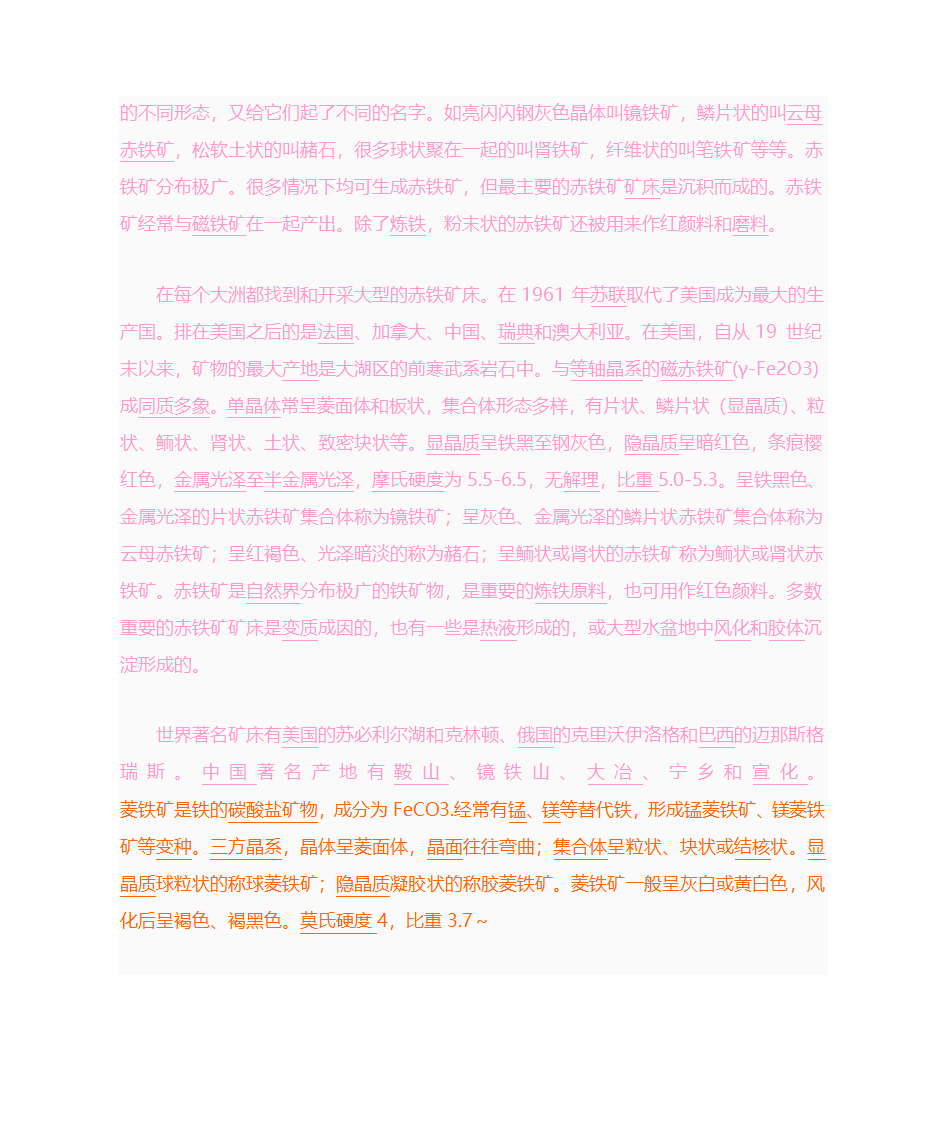 的不同形态，又给它们起了不同的名字。如亮闪闪钢灰色晶体叫镜铁矿，鳞片状的叫云母
赤铁矿，松软土状的叫赭石，很多球状聚在一起的叫肾铁矿，纤维状的叫笔铁矿等等。赤
铁矿分布极广。很多情况下均可生成赤铁矿，但最主要的赤铁矿矿床是沉积而成的。赤铁
矿经常与磁铁矿在一起产出。除了炼铁，粉末状的赤铁矿还被用来作红颜料和磨料。
在每个大洲都找到和开采大型的赤铁矿床。在 1961 年苏联取代了美国成为最大的生
产国。排在美国之后的是法国、加拿大、中国、瑞典和澳大利亚。在美国，自从 19 世纪
末以来，矿物的最大产地是大湖区的前寒武系岩石中。与等轴晶系的磁赤铁矿(γ-Fe2O3)
成同质多象。单晶体常呈菱面体和板状，集合体形态多样，有片状、鳞片状（显晶质）、粒
状、鲕状、肾状、土状、致密块状等。显晶质呈铁黑至钢灰色，隐晶质呈暗红色，条痕樱
红色，金属光泽至半金属光泽，摩氏硬度为 5.5-6.5，无解理，比重 5.0-5.3。呈铁黑色、
金属光泽的片状赤铁矿集合体称为镜铁矿；呈灰色、金属光泽的鳞片状赤铁矿集合体称为
云母赤铁矿；呈红褐色、光泽暗淡的称为赭石；呈鲕状或肾状的赤铁矿称为鲕状或肾状赤
铁矿。赤铁矿是自然界分布极广的铁矿物，是重要的炼铁原料，也可用作红色颜料。多数
重要的赤铁矿矿床是变质成因的，也有一些是热液形成的，或大型水盆地中风化和胶体沉
淀形成的。
世界著名矿床有美国的苏必利尔湖和克林顿、俄国的克里沃伊洛格和巴西的迈那斯格
瑞斯。中国著名产地有鞍山、镜铁山、大冶、宁乡和宣化。
菱铁矿是铁的碳酸盐矿物，成分为 FeCO3.经常有锰、镁等替代铁，形成锰菱铁矿、镁菱铁
矿等变种。三方晶系，晶体呈菱面体，晶面往往弯曲；集合体呈粒状、块状或结核状。显
晶质球粒状的称球菱铁矿；隐晶质凝胶状的称胶菱铁矿。菱铁矿一般呈灰白或黄白色，风
化后呈褐色、褐黑色。莫氏硬度 4，比重 3.7～